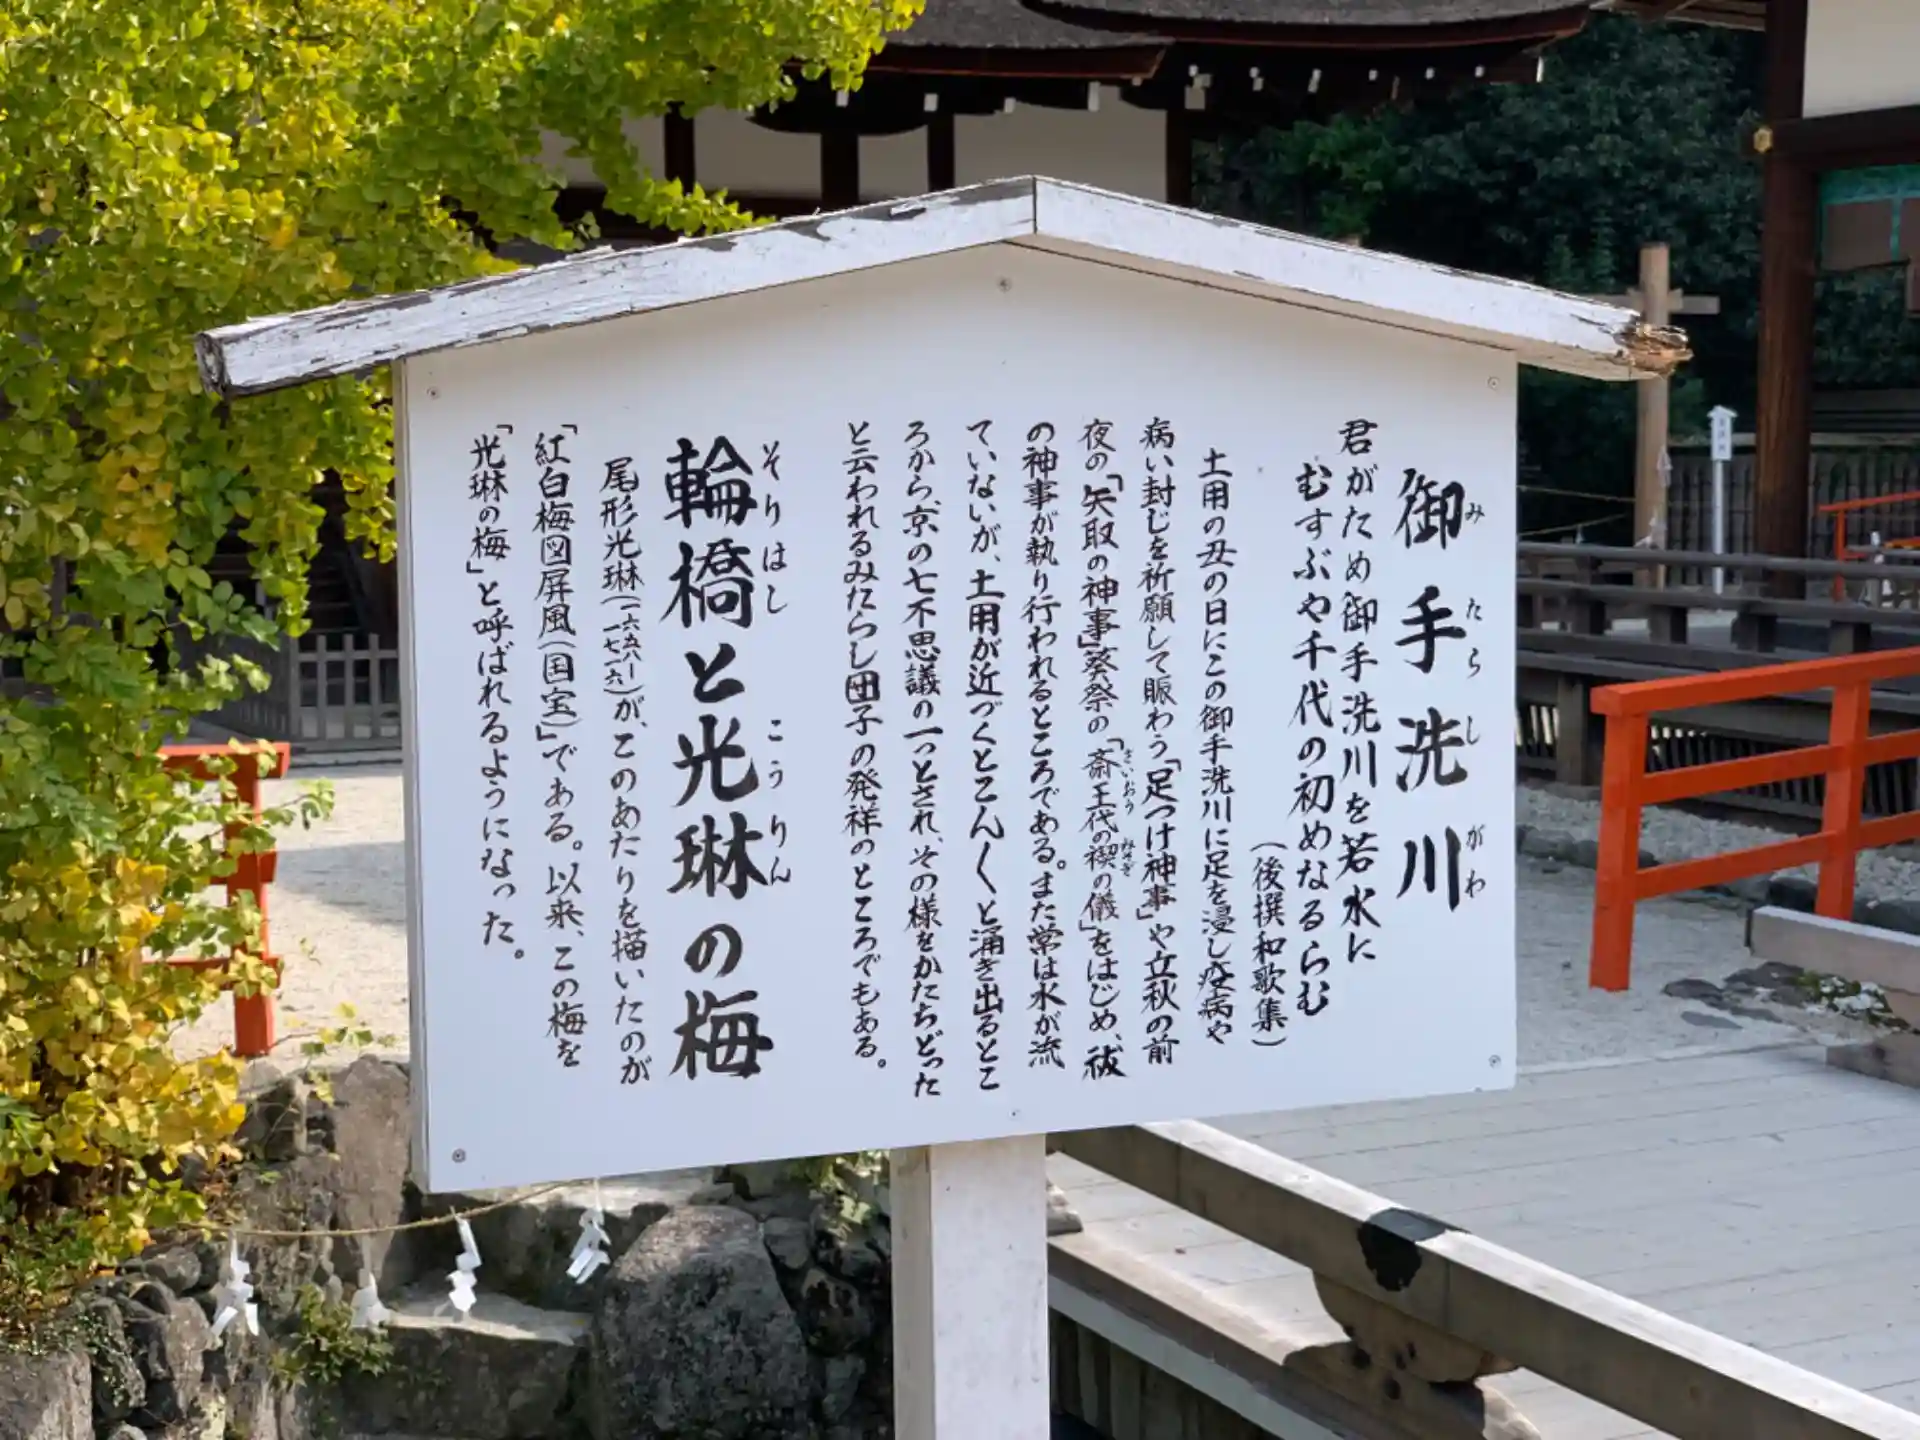 御手洗川
みたらしがわ
君がため御手洗川を若水に
むすぶや千代の初めなるらむ
(後撰和歌集)
土用の丑の日にこの御手洗川に足を浸し疫病や
病い封じを祈願して賑わう「足つけ神事」や立秋の前
夜の「矢取の神事」葵祭の「斎王代の禊の儀」をはじめ、祓
さいおう みそぎ
の神事が執り行われるところである。また常は水が流
ていないが、土用が近づくとこんく と涌き出るとこ
ろから、京の七不思議の一つとされ、その様をかたちどった
と云われるみたらし団子の発祥のところでもある。
輪橋と光琳の梅
そりはし こうりん
尾形光琳(一六五八―一七一六)が、このあたりを描いたのが
「紅白梅図屏風(国宝)」である。以来、この梅を
「光琳の梅」と呼ばれるようになった。